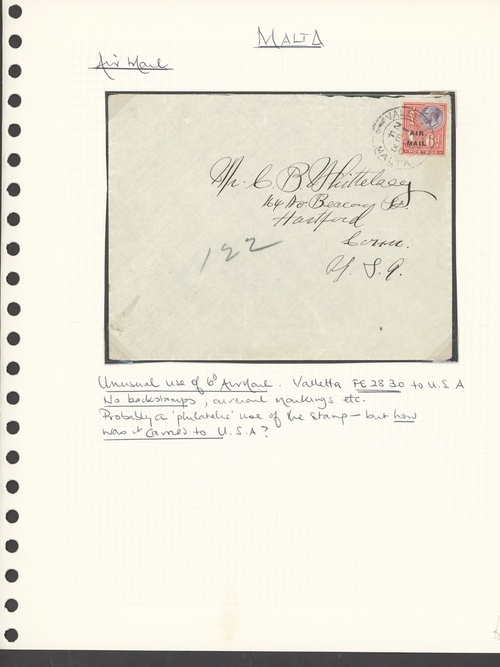 MALTA
Air Mail
VALLETTA
MALTA
AIR
MAIL
6d
POSTAGE
Mr. C. B. Whittelsey
164 No Beacon St.
Hartford
Conn.
U. S. A.
122
Unusual use of 6d Air Mail. Valletta FE 28 30 to U.S.A
No backstamps, arrival markings etc.
Probably a 'philatelic' use of the stamp - but how
was it carried to U.S.A?